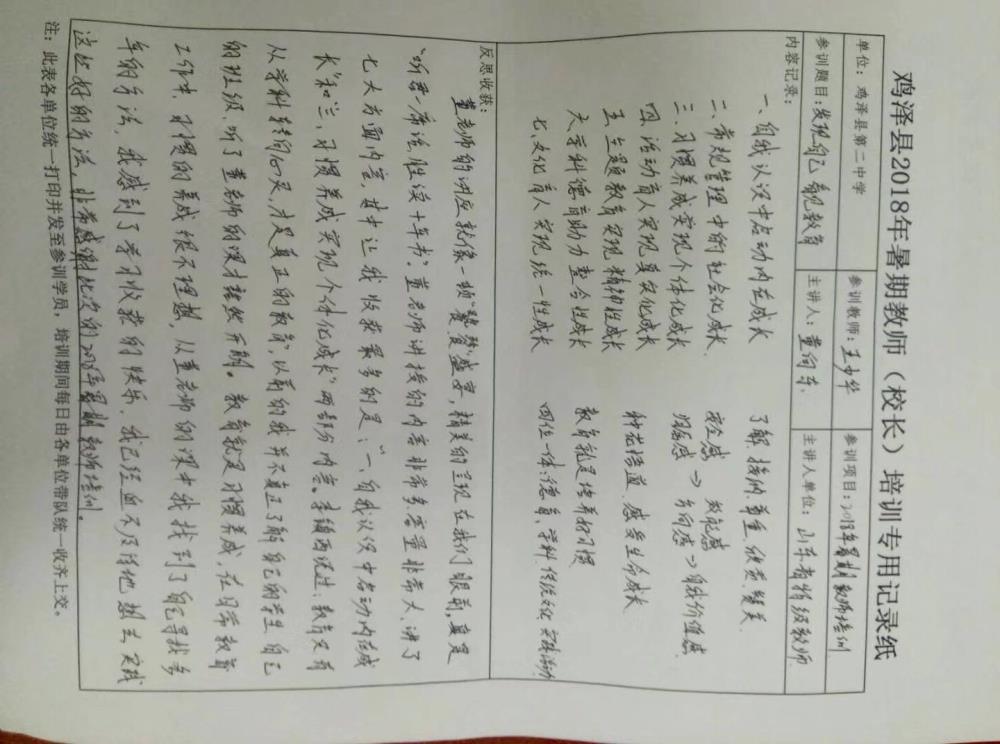 鸡泽县2018年暑期教师（校长）培训专用记录纸
单位：鸡泽县第二中学 参训教师：王少华 参训项目：2018年暑期教师培训
参训题目：发现自己看见教育 主讲人：董向东 主讲人单位：山东省特级教师
内容记录：
一、自我认识中启动内在成长 了解、接纳、尊重、优质、
二、常规管理中的社会化成长、 安全感 效能感
三、习惯养成实现个体化成长 归属感→方向感→自我价值感
四、活动育人实现真实化成长 种花悟道 感受生命成长
五、主题教育实现精神性成长
六、学科德育助力整合性成长 教育就是培养好习惯
七、文化育人实现统一性成长 四位一体：德育、学科、传统文化、实践活动
反思收获：
董老师的讲座就像一顿“饕餮”盛宴，精美的呈现在我们眼前，真是
“听君一席话胜读十年书”。董老师讲授的内容非常多、容量非常大、讲了
七大方面内容，其中让我收获最多的是：“一、自我认识中启动内在成
长”和“三、习惯养成实现个体化成长”两部分内容。李镇西说过：教育只有
从学科转向心灵，才是真正的教育，以前的我并不真正了解自己的学生自己
的班级，听了董老师的课才豁然开朗。教育就是习惯养成，在日常教育
工作中，习惯的养成很不理想，从董老师的课中我找到了自己寻找多
年的方法，我感到了学习收获的快乐，我已经迫不及待地想去实践
这些好的方法，非常感谢此次的2018年暑期教师培训。
注：此表各单位统一打印并发至参训学员，培训期间每日由各单位带队统一收齐上交。